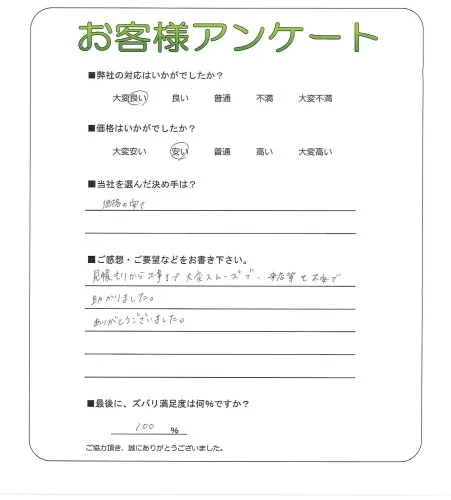 お客様アンケート
■弊社の対応はいかがでしたか？
大変良い 良い 普通 不満 大変不満
■価格はいかがでしたか？
大変安い 安い 普通 高い 大変高い
■当社を選んだ決め手は？
価格の安さ
■ご感想・ご要望などをお書き下さい。
見積もりから工事まで大変スムーズで、来店等も不要で
助かりました。
ありがとうございました。
■最後に、ズバリ満足度は何%ですか？
100 %
ご協力頂き、誠にありがとうございました。